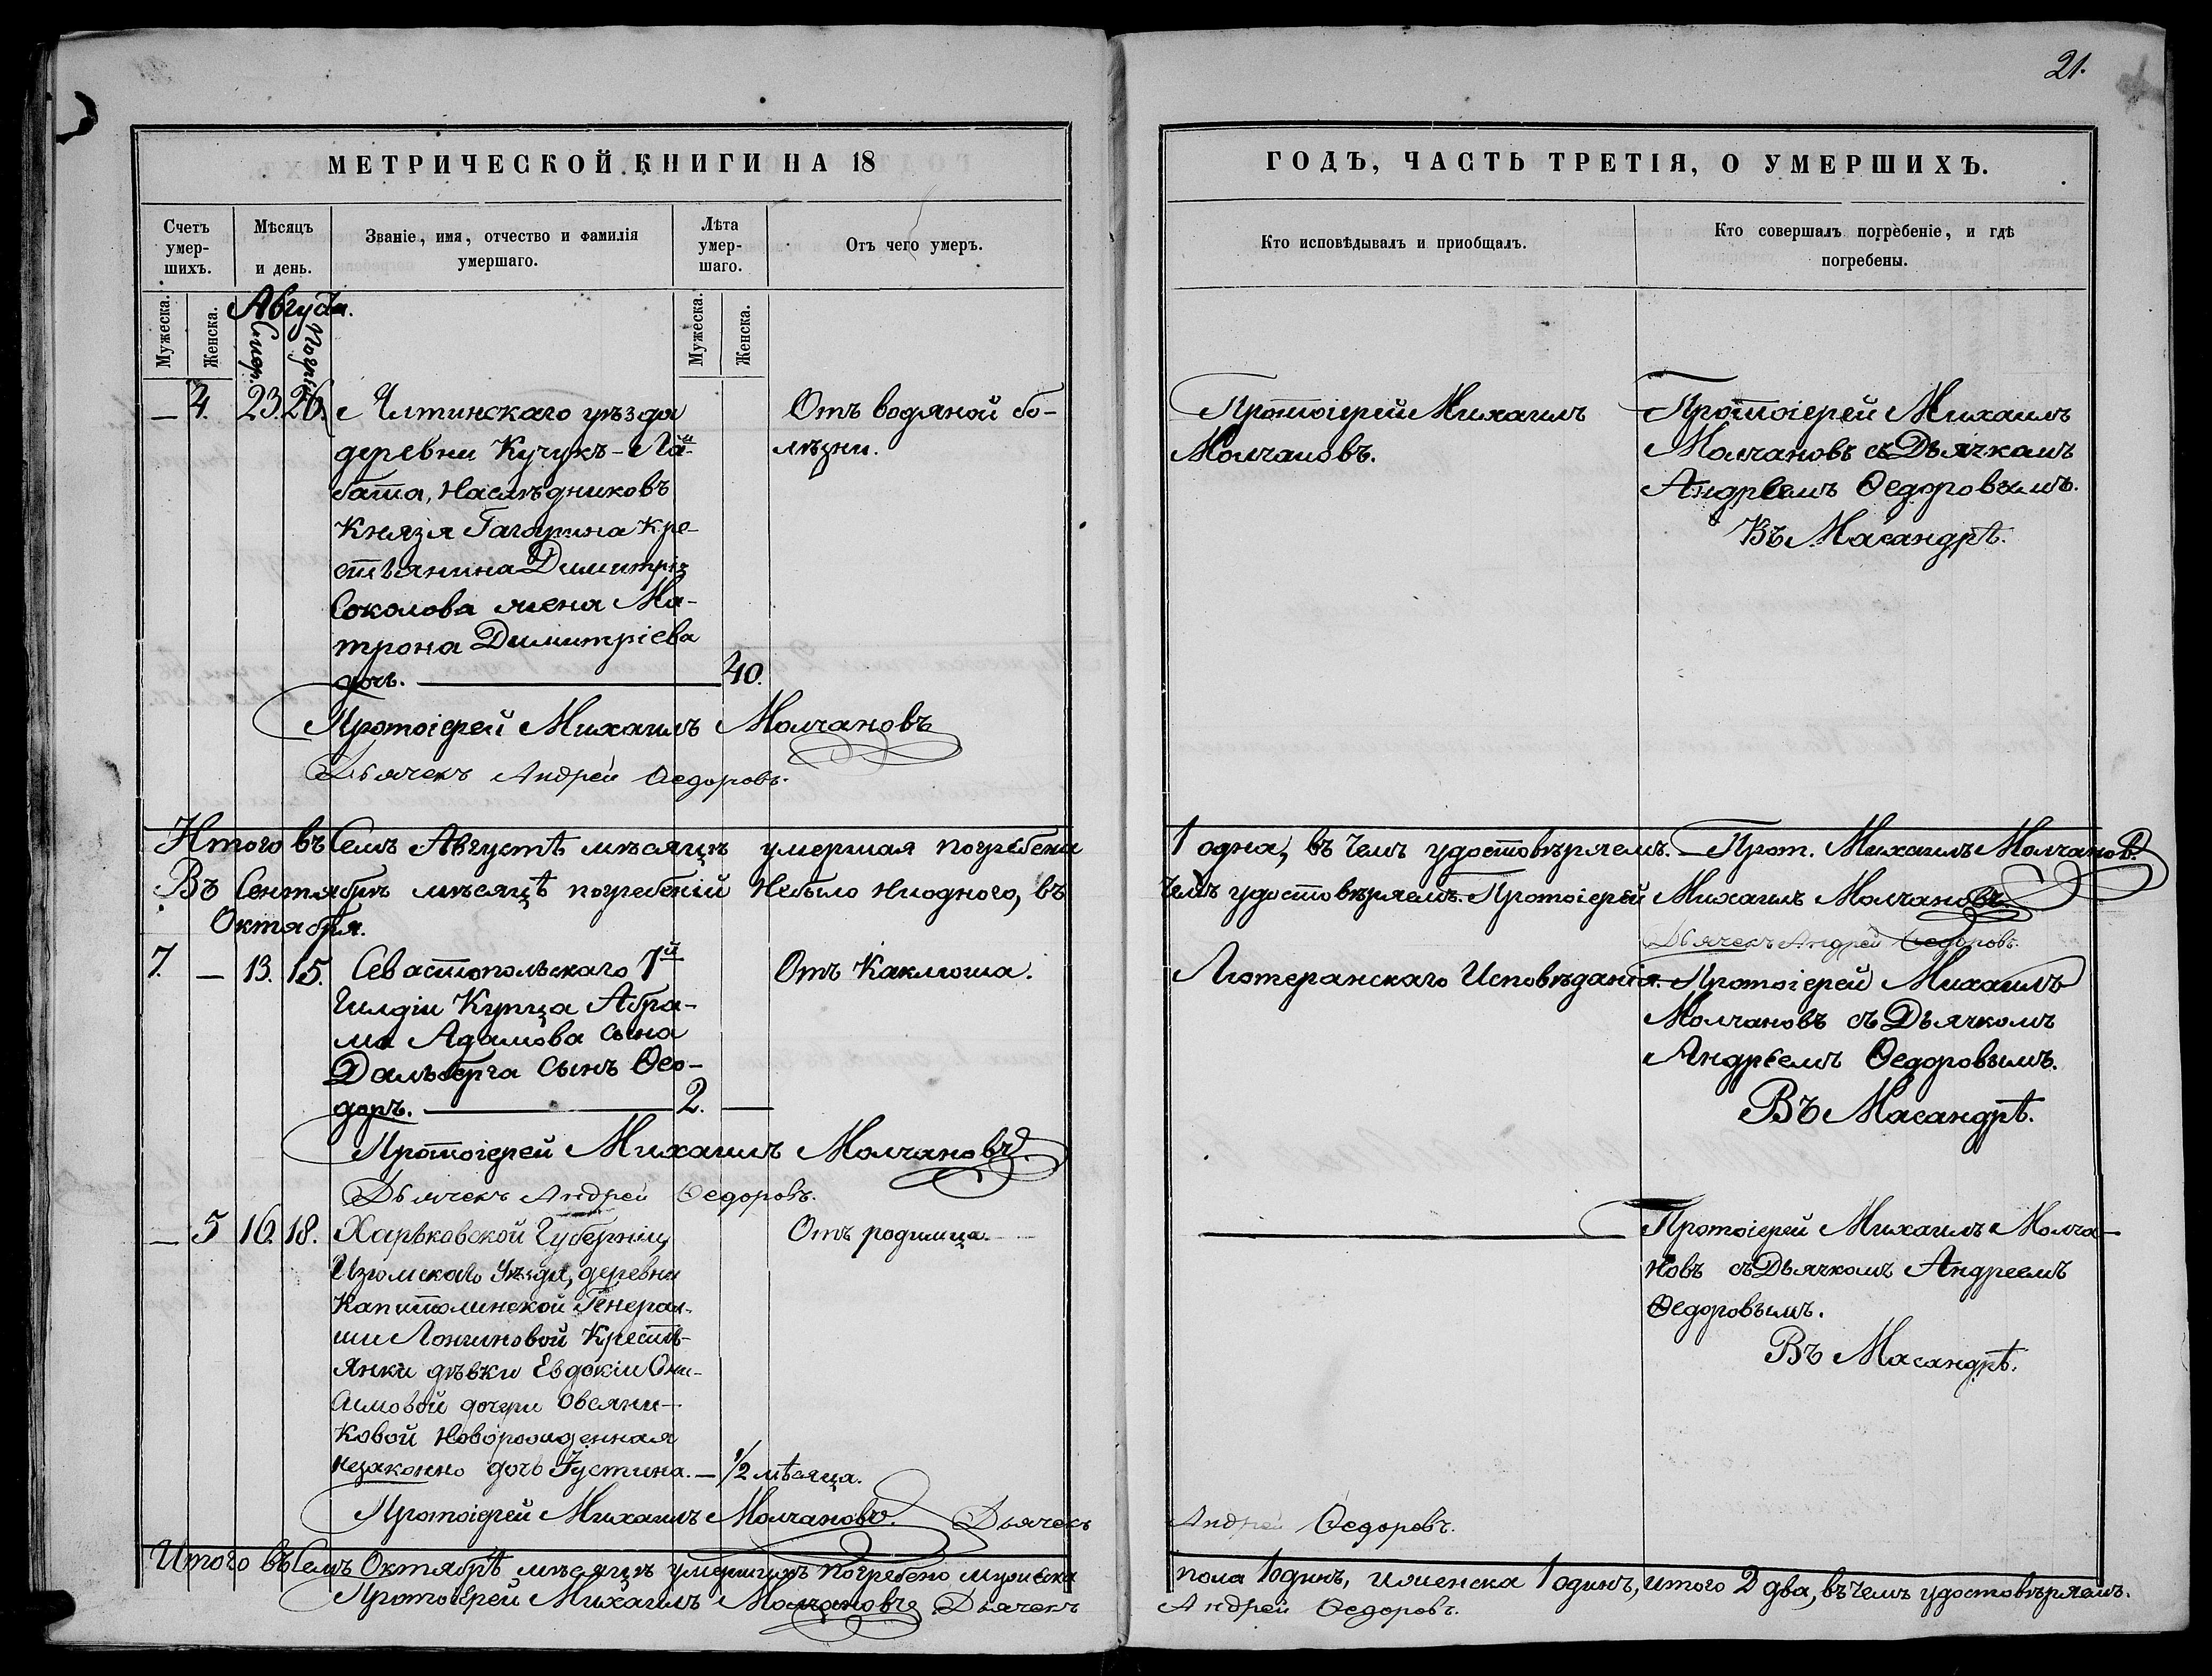 21.
МЕТРИЧЕСКОЙ КНИГИ НА 18
Счетъ умер-шихъ.
Мѣсяцъ и день.
Званіе, имя, отчество и фамилія умершаго.
Лѣта умер-шаго.
Отъ чего умеръ.
Мужеска.
Женска.
Августа.
Смер.
Погр.
Мужеска.
Женска.
— 4. 23. 26. Ялтинскаго уѣзда
деревни Кучукъ-Ла-
бата, Наслѣдниковъ
Князя Гагарина кре-
стьянина Димитрія
Соколова жена Ма-
трона Димитріева
дочь. — 40.
Отъ водяной бо-
лѣзни.
Протоіерей Михаилъ Молчановъ
Дьячекъ Андрей Ѳедоровъ.
Итого въ Семъ Августѣ мѣсяцѣ умершая погребена
Въ Сентябрѣ мѣсяцѣ погребеній Небыло Ниодного, въ
Октября.
7. — 13. 15. Севастопольскаго 1й
Гильдіи Купца Абра-
ма Адамова сына
Дальберга Сынъ Ѳео-
доръ. — 2. —
Отъ Каклюша.
Протоіерей Михаилъ Молчановъ.
Дьячекъ Андрей Ѳедоровъ.
— 5 16. 18. Харьковской Губерніи,
Изюмскаго Уѣзда, деревни
Капитолинской Генерал-
ши Лонгиновой Кресть-
янки дѣвки Евдокіи Они-
симовой дочери Овсяни-
ковой Новорожденная
незаконно дочь Іустина. — 1/2 мѣсяца.
Отъ родимца.
Протоіерей Михаилъ Молчановъ. Дьячекъ
Итого въ Семъ Октябрѣ мѣсяцѣ умершихъ погребено мужеска
Протоіерей Михаилъ Молчановъ Дьячекъ
ГОДЪ, ЧАСТЬ ТРЕТІЯ, О УМЕРШИХЪ.
Кто исповѣдывалъ и приобщалъ.
Кто совершалъ погребеніе, и гдѣ погребены.
Протоіерей Михаилъ
Молчановъ.
Протоіерей Михаилъ
Молчановъ съ Дьячкомъ
Андреемъ Ѳедоровымъ.
Въ Масандрѣ.
1 одна, въ чемъ удостовѣряемъ. — Прот. Михаилъ Молчановъ.
чемъ удостовѣряемъ. Протоіерей Михаилъ Молчановъ
Дьячекъ Андрей Ѳедоровъ.
Лютеранскаго Исповѣданія.
Протоіерей Михаилъ
Молчановъ съ Дьячкомъ
Андреемъ Ѳедоровымъ.
Въ Масандрѣ.
Протоіерей Михаилъ Молча-
новъ съ Дьячкомъ Андреемъ
Ѳедоровымъ.
Въ Масандрѣ.
Андрей Ѳедоровъ.
пола 1 одинъ, и женска 1 одинъ, итого 2 два, въ чемъ удостовѣряемъ.
Андрей Ѳедоровъ.